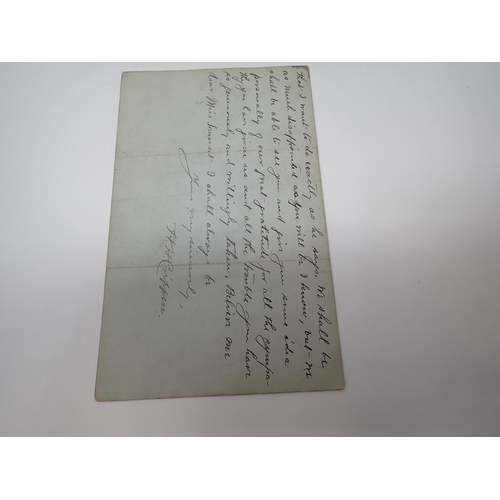 that I want to do exactly as he says. We shall be
as much disappointed as you will be I know, but we
shall be able to see you and give you some idea
personally of our great gratitude for all the sympa-
thy you have given us and all the trouble you have
so generously and willingly taken. Believe me
dear Miss I shall always be
Yours very sincerely,